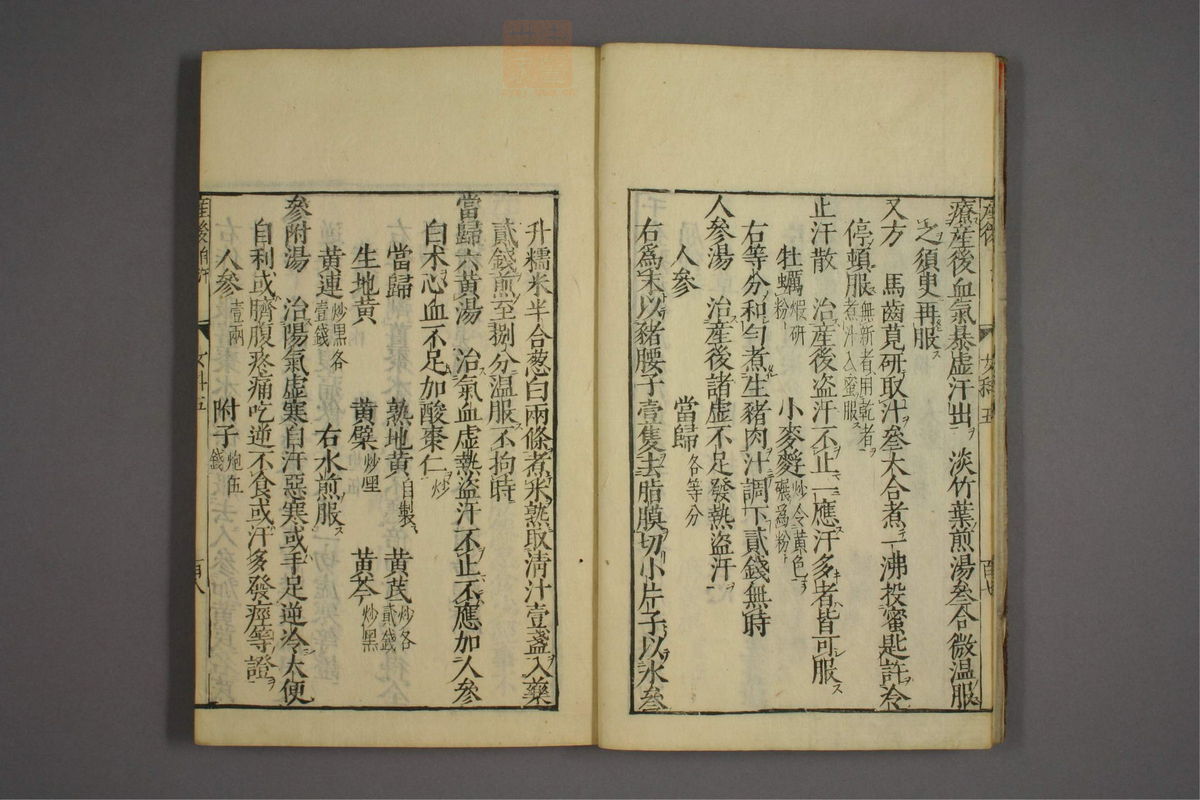 療産後血氣暴虚汗出 淡竹葉煎湯叄合微温服
之須臾再服
又方 馬齒莧研取汁叄大合煮一沸投蜜匙許冷
停頓服無新者用乾者煮汁入蜜服
止汗散 治産後盜汗不止一應汗多者皆可服
牡蠣煆研粉 小麥麩炒令黄色碾爲粉
右等分和勻煮生豬肉汁調下貳錢無時
人參湯 治産後諸虚不足發熱盜汗
人參 當歸各等分
右爲末以豬腰子壹隻去脂膜切小片子以水叄
升糯米半合葱白兩條煮米熟取清汁壹盞入藥
貳錢煎至捌分温服不拘時
當歸六黄湯 治氣血虚熱盜汗不止不應加人參
白朮心血不足加酸棗仁炒
當歸 熟地黄自製 黄芪炒各貳錢
生地黄 黄檗炒黑 黄芩炒黑
黄連炒黑各壹錢 右水煎服
參附湯 治陽氣虚寒自汗惡寒或手足逆冷大便
自利或臍腹疼痛吃逆不食或汗多發痙等證
人參壹兩 附子炮伍錢
産後自汗 女科五 百八